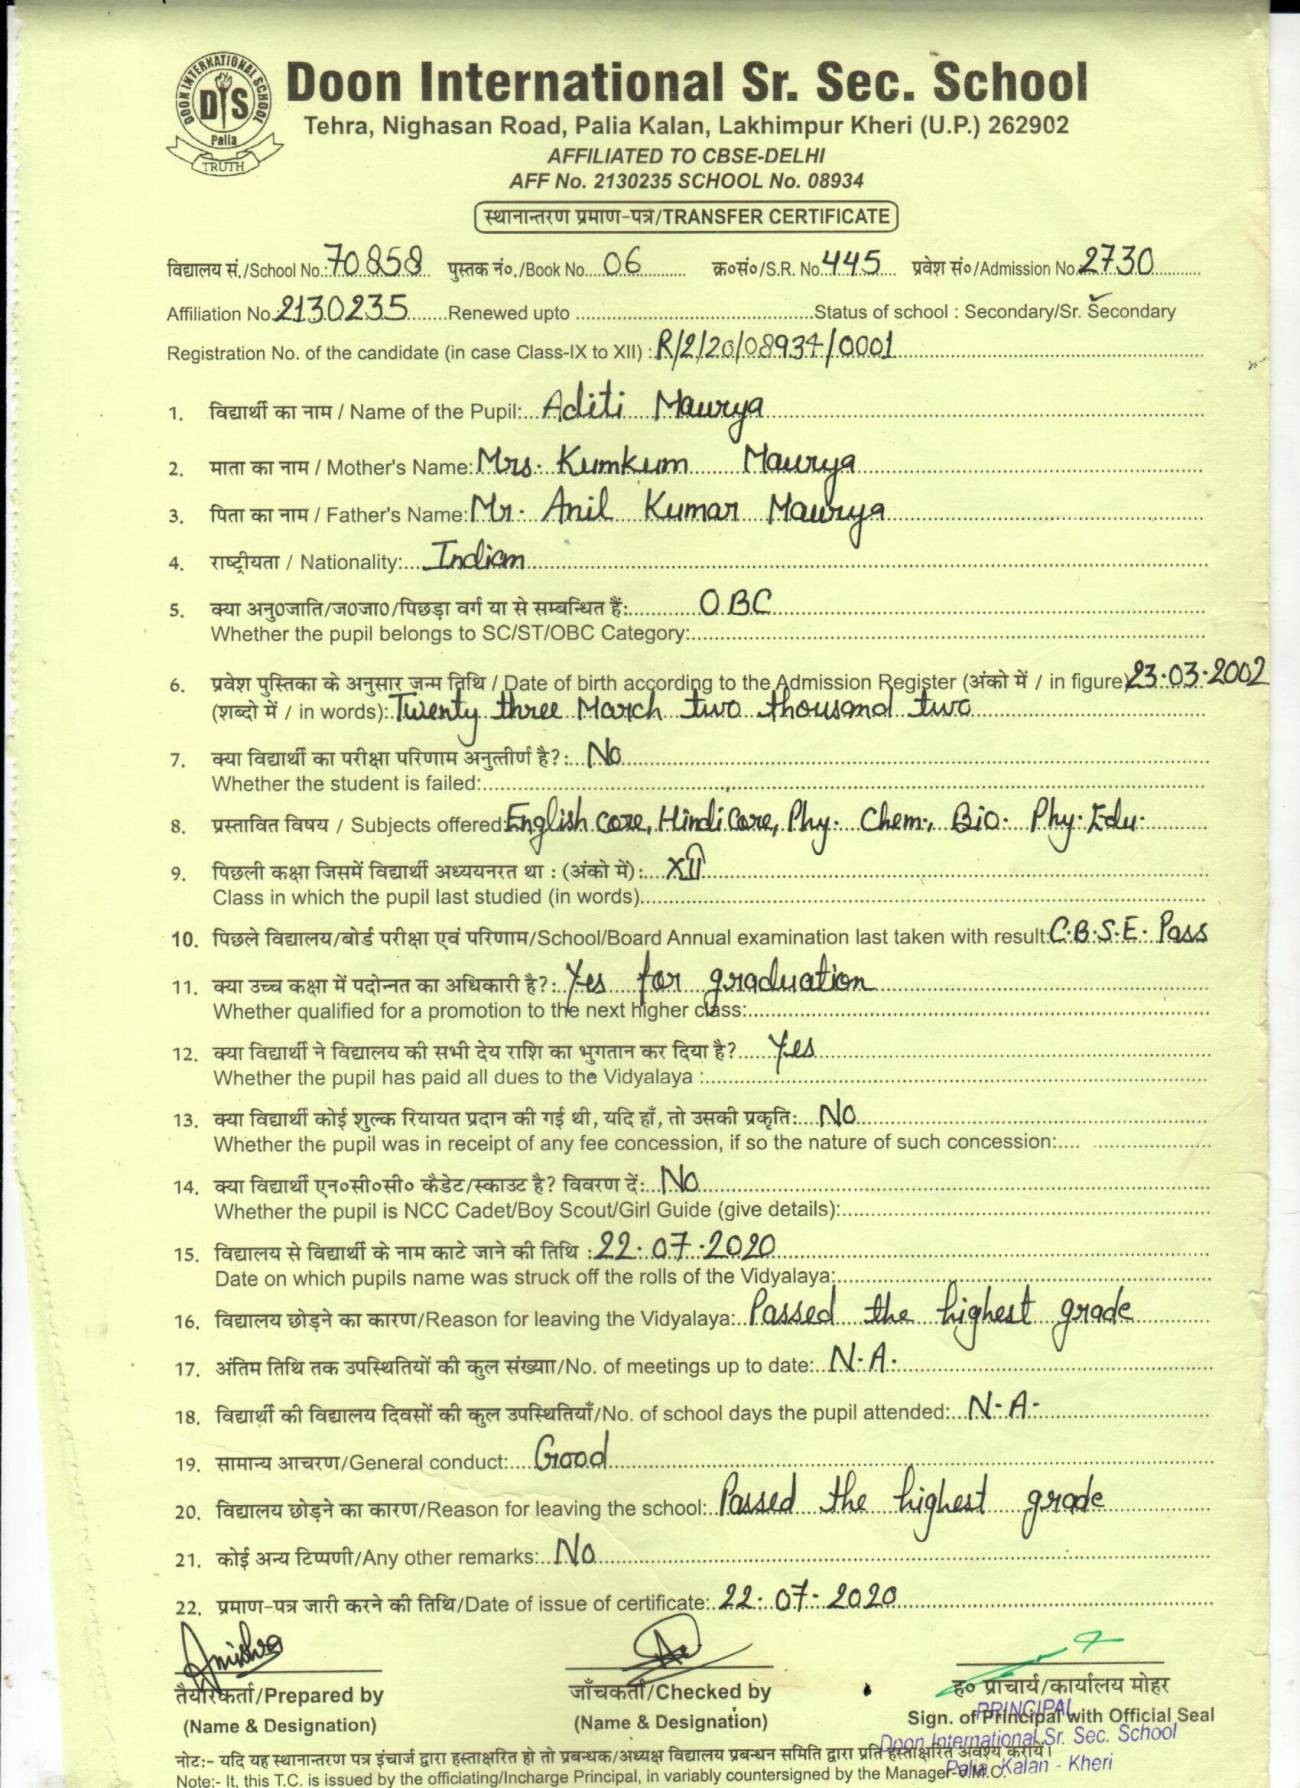 DOON INTERNATIONAL SCHOOL
DIS
Palia
TRUTH
Doon International Sr. Sec. School
Tehra, Nighasan Road, Palia Kalan, Lakhimpur Kheri (U.P.) 262902
AFFILIATED TO CBSE-DELHI
AFF No. 2130235 SCHOOL No. 08934
स्थानान्तरण प्रमाण-पत्र/TRANSFER CERTIFICATE
विद्यालय सं./School No. 70858 पुस्तक नं०./Book No. 06 क्र०सं०/S.R. No. 445 प्रवेश सं०/Admission No. 2730
Affiliation No. 2130235 Renewed upto Status of school : Secondary/Sr. Secondary
Registration No. of the candidate (in case Class-IX to XII) : R/2/20/08934/0001
1. विद्यार्थी का नाम / Name of the Pupil: Aditi Maurya
2. माता का नाम / Mother's Name: Mrs. Kumkum Maurya
3. पिता का नाम / Father's Name: Mr. Anil Kumar Maurya
4. राष्ट्रीयता / Nationality: Indian
5. क्या अनु0जाति/ज0जा0/पिछड़ा वर्ग या से सम्बन्धित हैं: OBC
Whether the pupil belongs to SC/ST/OBC Category:
6. प्रवेश पुस्तिका के अनुसार जन्म तिथि / Date of birth according to the Admission Register (अंको में / in figure) 23.03.2002
(शब्दो में / in words): Twenty three March two thousand two
7. क्या विद्यार्थी का परीक्षा परिणाम अनुत्तीर्ण है?: No
Whether the student is failed:
8. प्रस्तावित विषय / Subjects offered: English core, Hindi Core, Phy. Chem., Bio. Phy. Edu.
9. पिछली कक्षा जिसमें विद्यार्थी अध्ययनरत था : (अंको में): XII
Class in which the pupil last studied (in words)
10. पिछले विद्यालय/बोर्ड परीक्षा एवं परिणाम/School/Board Annual examination last taken with result: C.B.S.E. Pass
11. क्या उच्च कक्षा में पदोन्नत का अधिकारी है?: Yes for graduation
Whether qualified for a promotion to the next higher class:
12. क्या विद्यार्थी ने विद्यालय की सभी देय राशि का भुगतान कर दिया है? Yes
Whether the pupil has paid all dues to the Vidyalaya :
13. क्या विद्यार्थी कोई शुल्क रियायत प्रदान की गई थी, यदि हाँ, तो उसकी प्रकृति: No
Whether the pupil was in receipt of any fee concession, if so the nature of such concession:
14. क्या विद्यार्थी एन०सी०सी० कैडेट/स्काउट है? विवरण दें: No
Whether the pupil is NCC Cadet/Boy Scout/Girl Guide (give details):
15. विद्यालय से विद्यार्थी के नाम काटे जाने की तिथि : 22.07.2020
Date on which pupils name was struck off the rolls of the Vidyalaya:
16. विद्यालय छोड़ने का कारण/Reason for leaving the Vidyalaya: Passed the highest grade
17. अंतिम तिथि तक उपस्थितियों की कुल संख्याा/No. of meetings up to date: N.A.
18. विद्यार्थी की विद्यालय दिवसों की कुल उपस्थितियाँ/No. of school days the pupil attended: N.A.
19. सामान्य आचरण/General conduct: Good
20. विद्यालय छोड़ने का कारण/Reason for leaving the school: Passed the highest grade
21. कोई अन्य टिप्पणी/Any other remarks: No
22. प्रमाण-पत्र जारी करने की तिथि/Date of issue of certificate: 22.07.2020
तैयारकर्ता/Prepared by जाँचकर्ता/Checked by ह० प्राचार्य/कार्यालय मोहर
(Name & Designation) (Name & Designation) Sign. of Principal with Official Seal
PRINCIPAL
Doon International Sr. Sec. School
Palia Kalan - Kheri
नोट:- यदि यह स्थानान्तरण पत्र इंचार्ज द्वारा हस्ताक्षरित हो तो प्रबन्धक/अध्यक्ष विद्यालय प्रबन्धन समिति द्वारा प्रति हस्ताक्षरित अवश्य करायें।
Note:- It, this T.C. is issued by the officiating/Incharge Principal, in variably countersigned by the Manager-V.M.C.